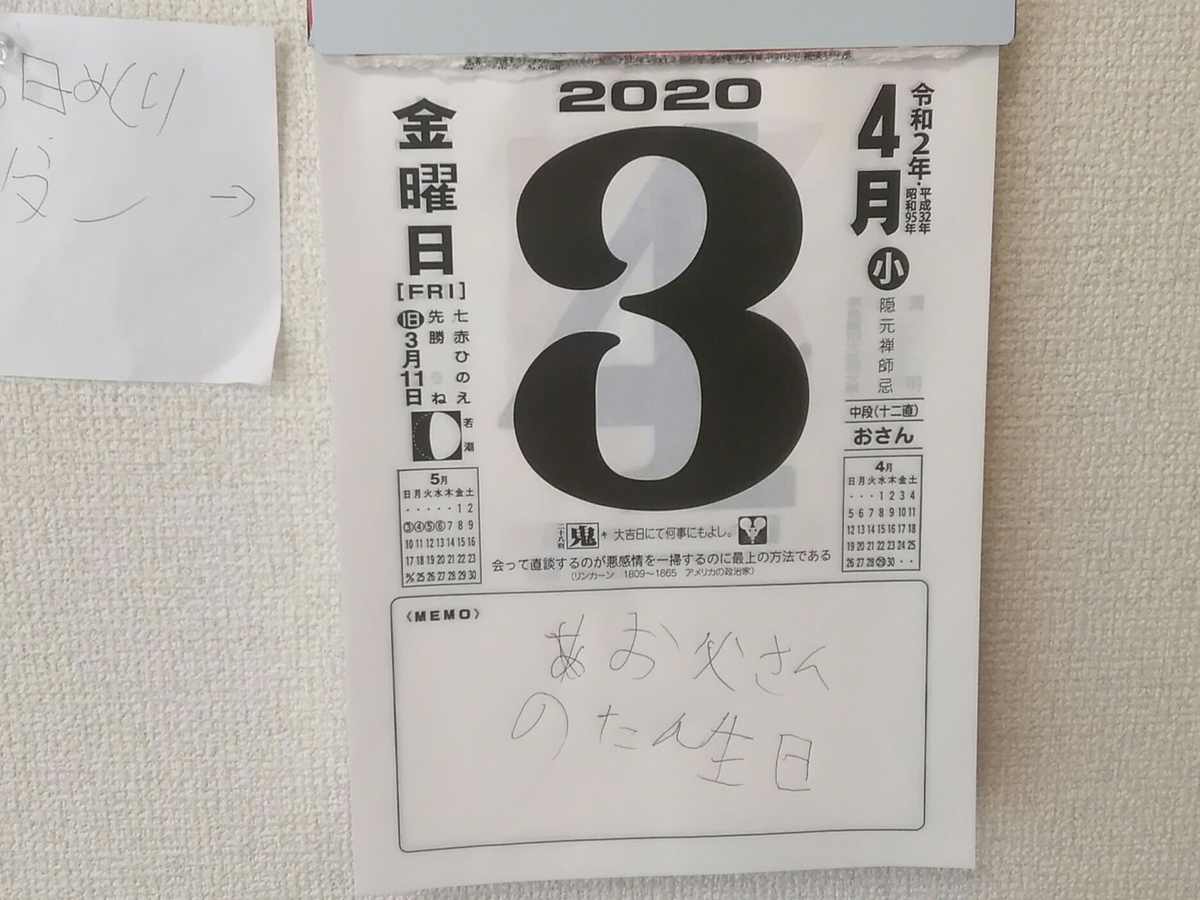 日めくり
→
2020
令和2年・平成32年
昭和95年
4月
小
隠元禅師忌
中段(十二直)
おさん
金曜日
[FRI]
七赤ひのえ
先勝 うね
旧3月11日
若潮
3
5月
日月火水木金土
・・・・・1 2
3 4 5 6 7 8 9
10 11 12 13 14 15 16
17 18 19 20 21 22 23
24/31 25 26 27 28 29 30
4月
日月火水木金土
・・・1 2 3 4
5 6 7 8 9 10 11
12 13 14 15 16 17 18
19 20 21 22 23 24 25
26 27 28 29 30・・
二十八宿 鬼 キ 大吉日にて何事にもよし。
会って直談するのが悪感情を一掃するのに最上の方法である
(リンカーン 1809~1865 アメリカの政治家)
〈MEMO〉
お父さん
のたん生日